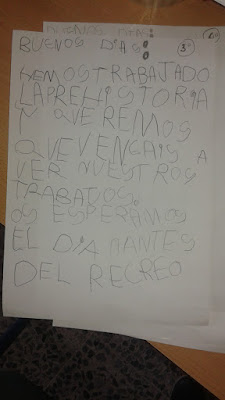 BUENOS DIAS: 3º
HEMOS TRABAJADO
LA PREHISTORIA
Y QUEREMOS
QUE VENGAIS A
VER NUESTROS
TRABAJOS.
OS ESPERAMOS
EL DIA ANTES
DEL RECREO